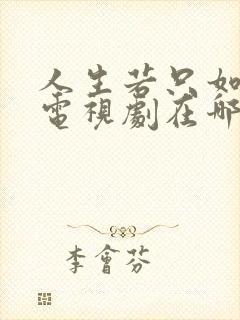 人生若只如
電視劇在哪
李會芬